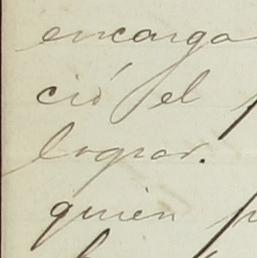 encarga
ció el
lograr.
quien